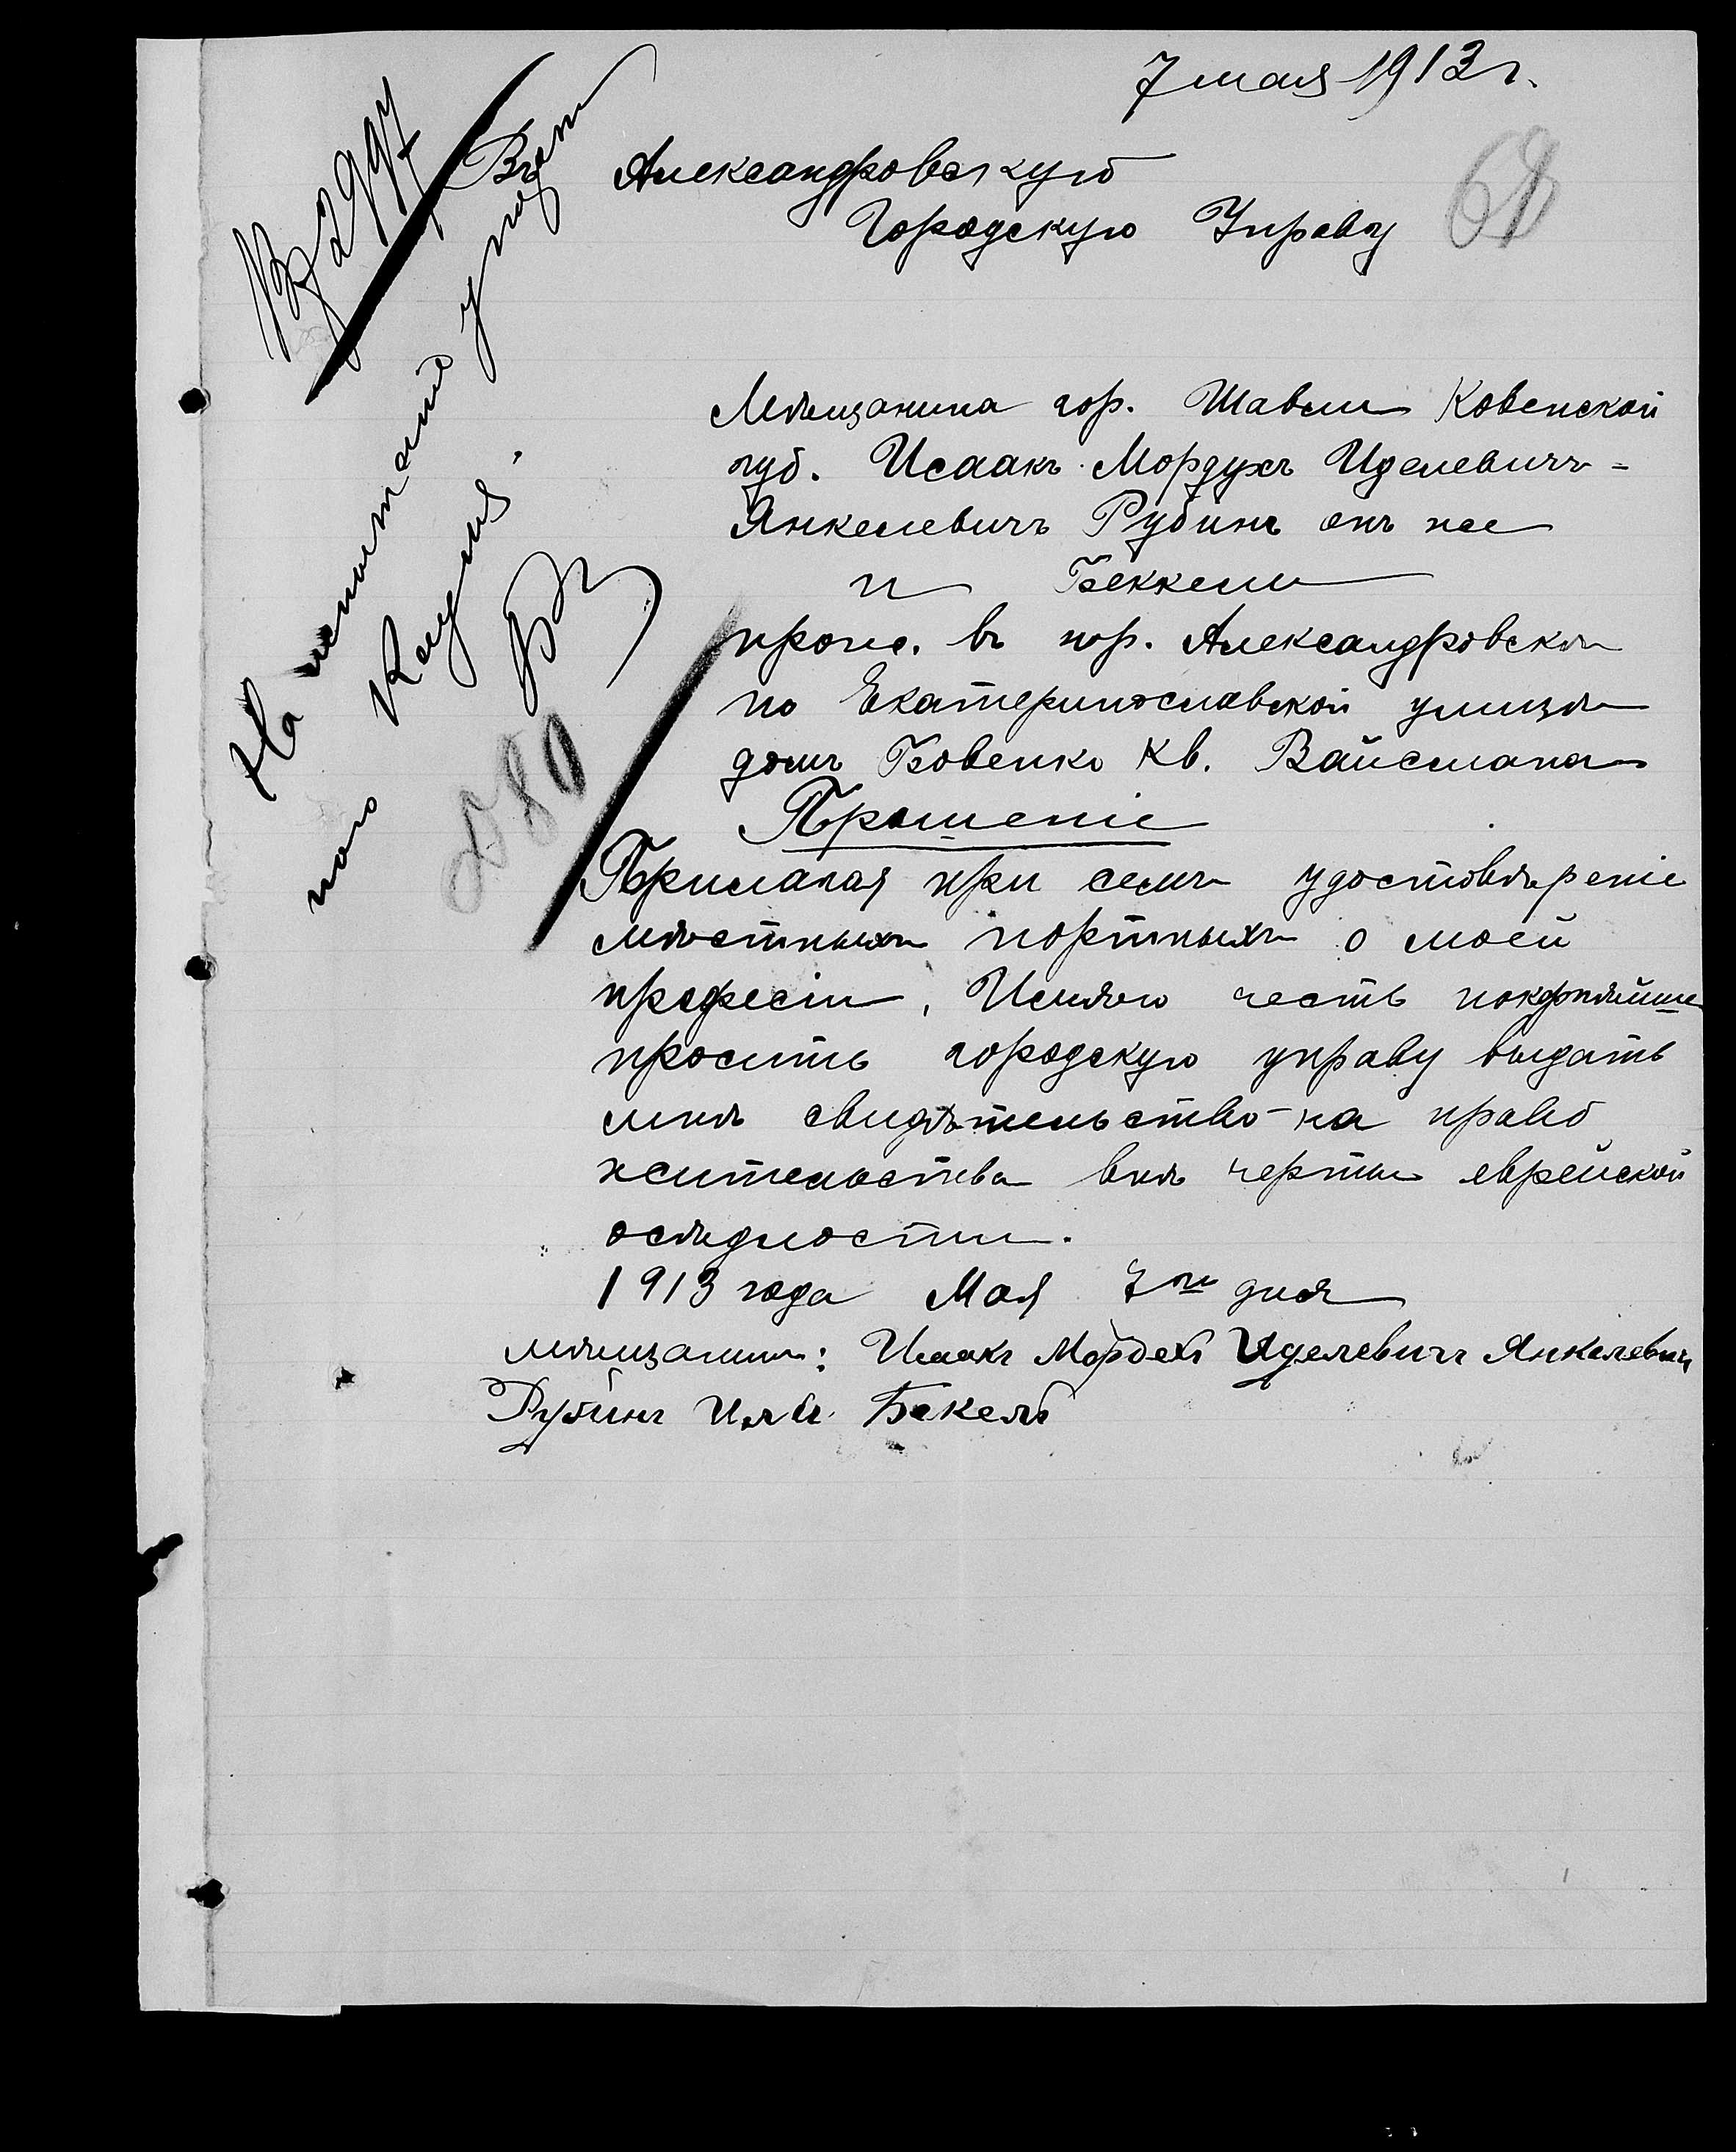 7 мая 1913 г.
68
№ 2997
Въ Александровскую
Городскую Управу
Мѣщанина гор. Шавли Ковенской
губ. Исаакъ Мордухъ Иделевичъ-
Янкелевичъ Рубинъ онъ же
и Беккель
прож. въ гор. Александровскѣ
по Екатеринославской улицѣ
домъ Бовенко кв. Вайсмана
Прошеніе
Прилагая при семъ удостовѣреніе
мѣстныхъ портныхъ о моей
професіи, Имѣю честь покорнѣйше
просить городскую управу выдать
мнѣ свидѣтельство на право
жительства внѣ черты еврейской
осѣдлости.
1913 года Мая 7го дня
мѣщанинъ: Исаакъ Мордехъ Иделевичъ Янкелевичъ
Рубинъ Бекель
На испытаніе у порт
ного